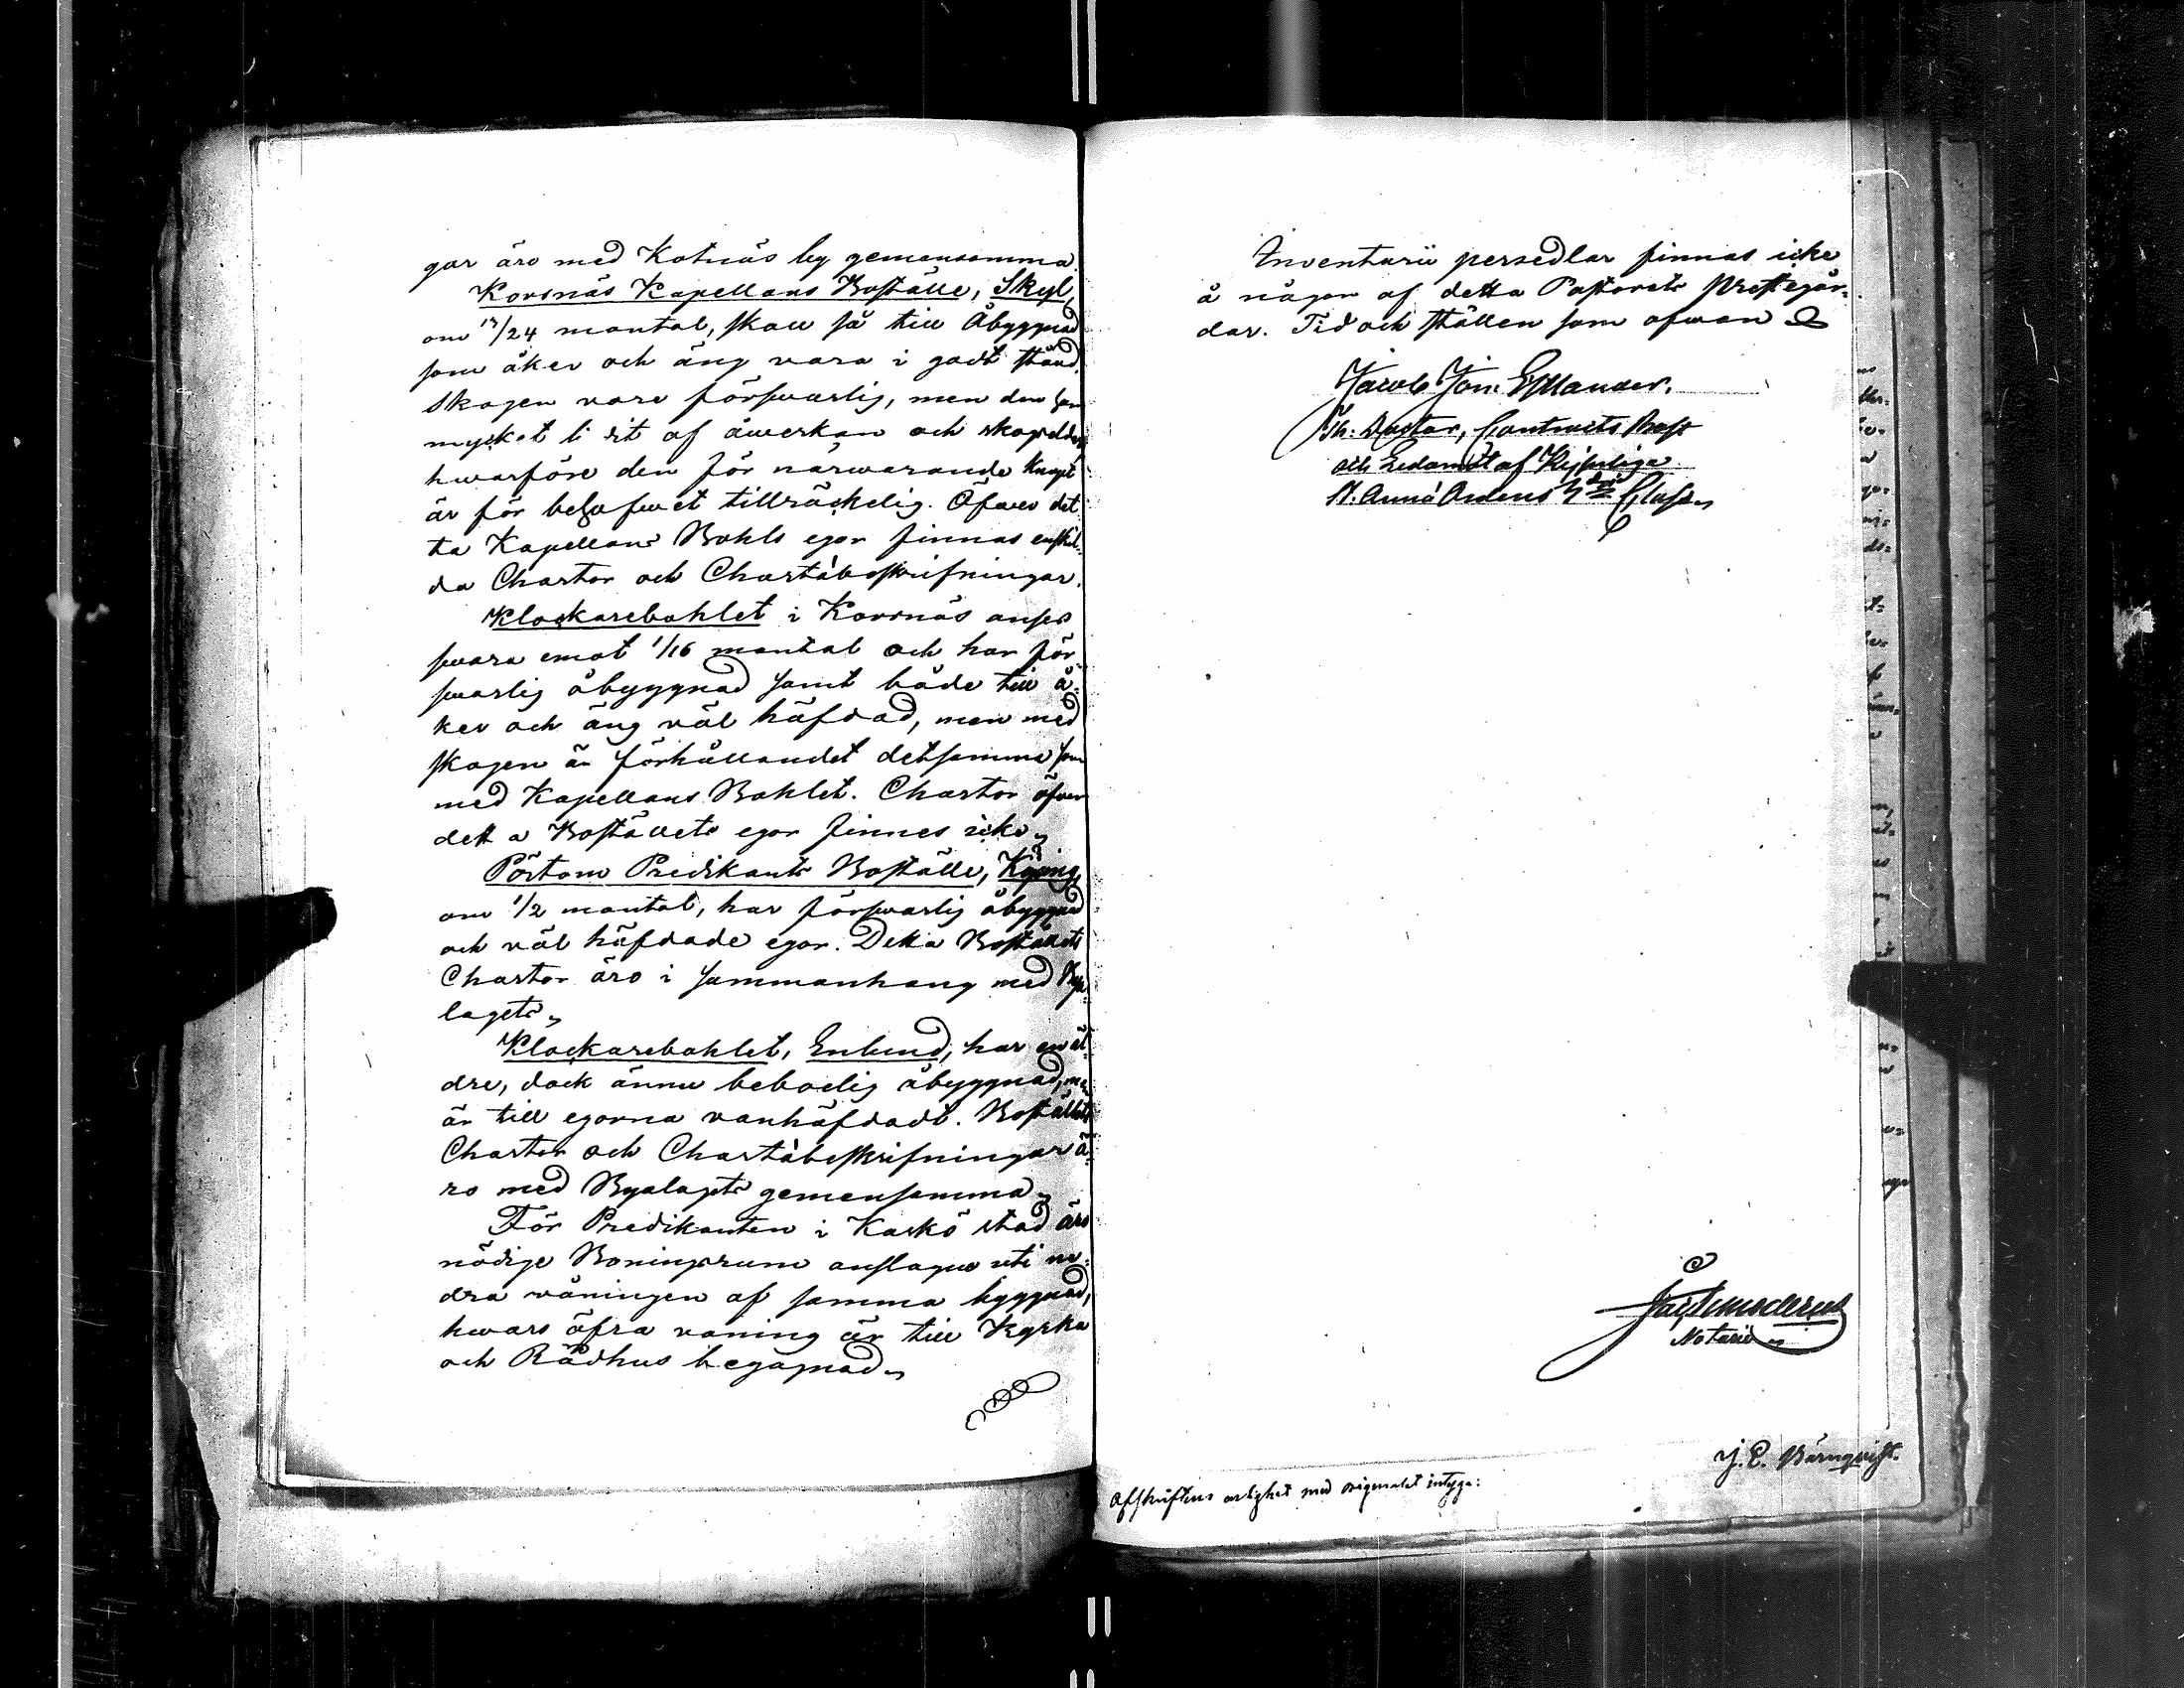 gar äro med Kotnäs by gemensamma.
Korsnäs Kapellans Boställe, Skyl,
om 17/24 mantal, skall så till Åbyggnad
som åker och äng vara i godt stånd.
Skogen vore försvarlig, men den har
mycket lidit af åwerkan och skogseldar
hwarföre den för närwarande knapt
är för behofwet tillräckelig. Öfwer det-
ta Kapellans Bohls egor finnas enskil-
da Chartor och Chartæbeskrifningar.
Klockarebohlet i Korsnäs anses
swara emot 1/16 mantal och har för-
swarlig åbyggnad samt både till å-
ker och äng väl häfdad, men med
skogen är förhållandet detsamma som
med Kapellans Bohlet. Chartor öfver
detta Boställets egor finnes icke
Pörtom Predikants Boställe, Köping,
om 1/2 mantal, har förswarlig åbyggnad
och väl häfdade egor. Detta Boställets
Chartor äro i sammanhang med Bya-
lagets
Klockarebohlet, Enlund, har en äl-
dre, dock ännu beboelig åbyggnad, men
är till egorna vanhäfdadt. Boställets
Chartor och Chartæbeskrifningar ä-
ro med Byalagets gemensamma
För Predikanten i Kaskö stad äro
nödige Boningsrum anslagne uti ne-
dra våningen af samma byggnad,
hwars öfra vaning är till Kyrka
och Rådhus begagnad
Inventarii persedlar finnas icke
å någon af detta Pastorats Prestegår-
dar. Tid och ställen som ofwan
Jacob Jon. Estlander.
Th: Doctor, Contracts Prost
och Ledamot af Kejserliga
St. Annæ Ordens 2dra Classen
Notarie
J. E. Wärnqvist.
Afskriftens ärlighet med originalet intyga: